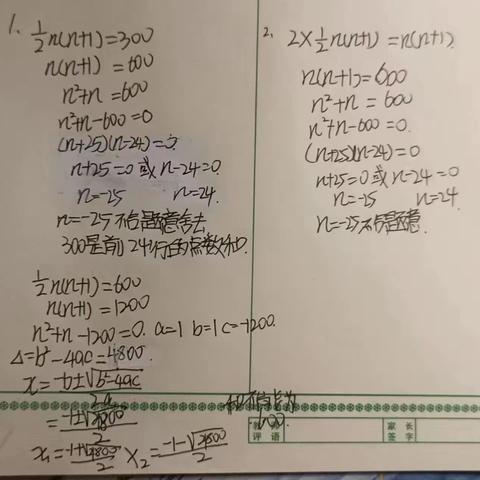 1. ½n(n+1)=300
n(n+1)=600
n²+n=600
n²+n-600=0
(n+25)(n-24)=0
n+25=0 或 n-24=0
n=-25 n=24.
n=-25不合题意舍去
300是前24行的点数和.
½n(n+1)=600
n(n+1)=1200
n²+n-1200=0. a=1 b=1 c=-1200.
Δ=b²-4ac=4800.
x=-b±√b²-4ac/2a
=-1±√4800/2
x₁=-1+√4800/2 x₂=-1-√4800/2
和不可能为
600.
2. 2×½n(n+1)=n(n+1)
n(n+1)=600
n²+n=600
n²+n-600=0.
(n+25)(n-24)=0
n+25=0或n-24=0
n=-25 n=24.
n=-25不合题意.
评语
家长
签字